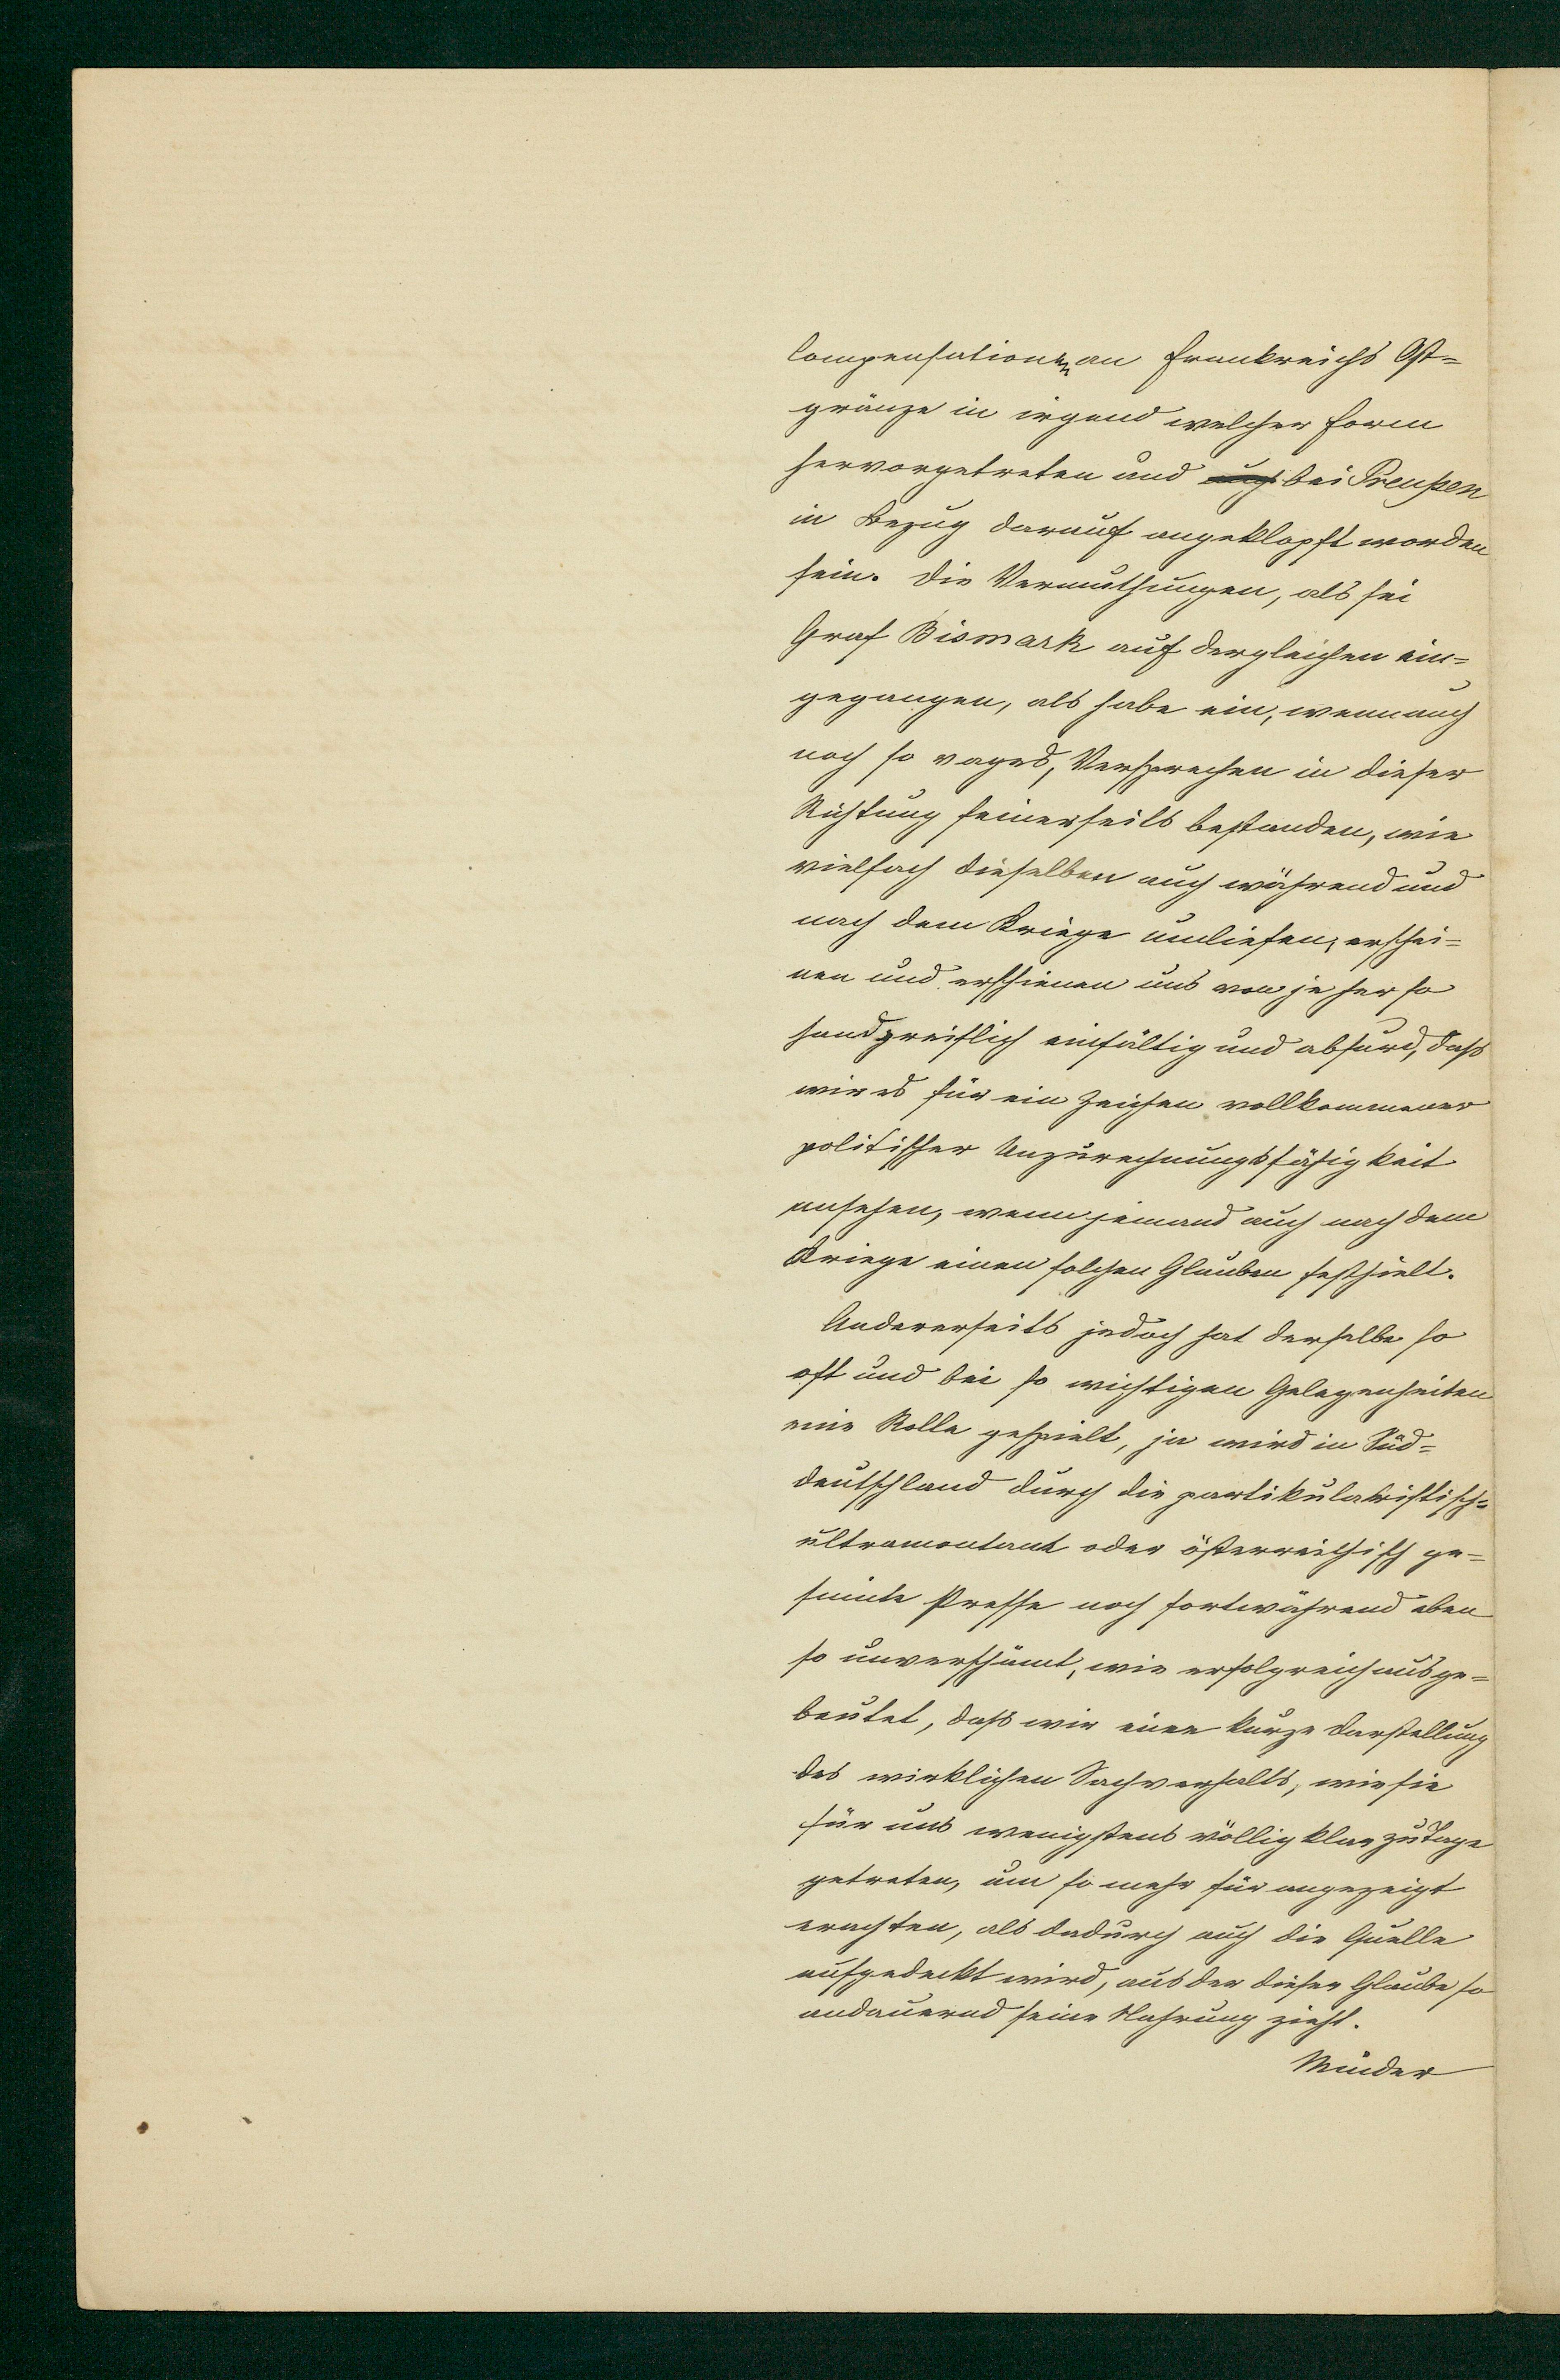 Compensationen an Frankreichs Ost-
gränze in irgend welcher Form
hervorgetreten und auch bei Preußen
in Bezug darauf angeklopft worden
sein. Die Vermuthungen, als sei
Graf Bismark auf dergleichen ein-
gegangen, als habe ein, wenn auch
noch so vages, Versprechen in dieser
Richtung seinerseits bestanden, wie
vielfach dieselben auch während und
nach dem Kriege umliefen, erschei-
nen und erschienen uns von je her so
handgreiflich einfältig und absurd, daß
wir es für ein Zeichen vollkommener
politischer Unzurechnungsfähigkeit
ansehen, wenn jemand auch nach dem
Kriege einen solchen Glauben festhielt.
Andererseits jedoch hat derselbe so
oft und bei so wichtigen Gelegenheiten
eine Rolle gespielt, ja wird in Süd-
deutschland durch die partikularistisch-
ultramontane oder österreichisch ge-
sinnte Presse noch fortwährend eben
so unverschämt, wie erfolgreich ausge-
beutet, daß wir eine kurze Darstellung
des wirklichen Sachverhalts, wie sie
für uns wenigstens völlig klar zu Tage
getreten, um so mehr für angezeigt
erachten, als dadurch auch die Quelle
aufgedeckt wird, aus der dieser Glaube so
andauernd seine Nahrung zieht.
Minder